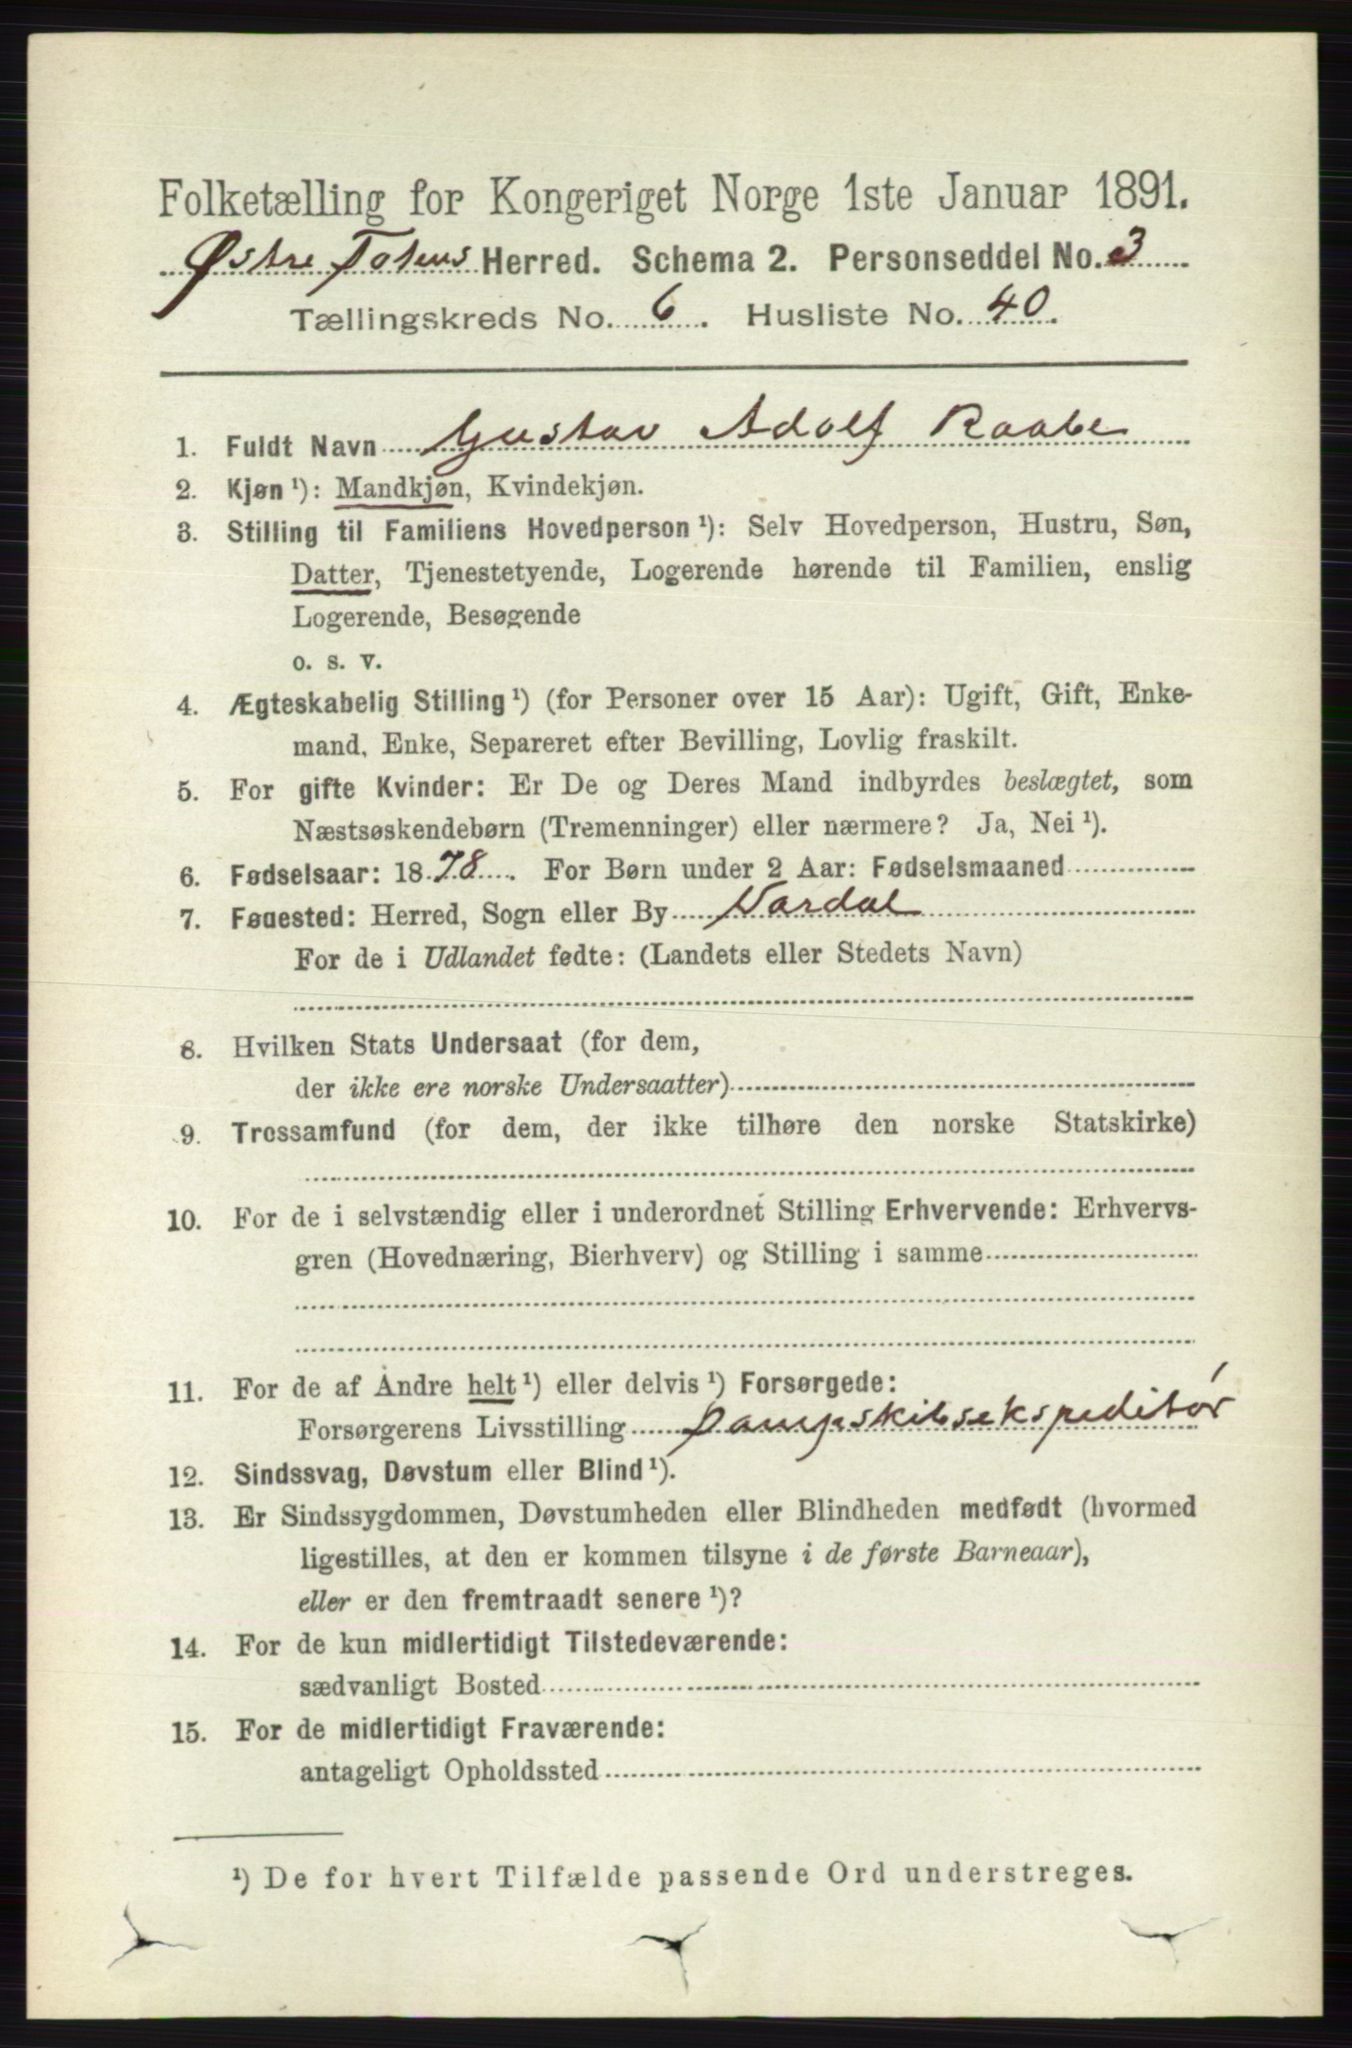 Folketælling for Kongeriget Norge 1ste Januar 1891.
Østre Totens Herred. Schema 2. Personseddel No. 3
Tællingskreds No. 6. Husliste No. 40.
1. Fuldt Navn Gustav Adolf Raabe
2. Kjøn ¹): Mandkjøn, Kvindekjøn.
3. Stilling til Familiens Hovedperson ¹): Selv Hovedperson, Hustru, Søn,
Datter, Tjenestetyende, Logerende hørende til Familien, enslig
Logerende, Besøgende
o. s. v.
4. Ægteskabelig Stilling ¹) (for Personer over 15 Aar): Ugift, Gift, Enke-
mand, Enke, Separeret efter Bevilling, Lovlig fraskilt.
5. For gifte Kvinder: Er De og Deres Mand indbyrdes beslægtet, som
Næstsøskendebørn (Tremenninger) eller nærmere? Ja, Nei ¹).
6. Fødselsaar: 1878. For Børn under 2 Aar: Fødselsmaaned
7. Fødested: Herred, Sogn eller By Vardal
For de i Udlandet fødte: (Landets eller Stedets Navn)
8. Hvilken Stats Undersaat (for dem,
der ikke ere norske Undersaatter)
9. Trossamfund (for dem, der ikke tilhøre den norske Statskirke)
10. For de i selvstændig eller i underordnet Stilling Erhvervende: Erhvervs-
gren (Hovednæring, Bierhverv) og Stilling i samme
11. For de af Andre helt ¹) eller delvis ¹) Forsørgede:
Forsørgerens Livsstilling Dampskibsekspeditør
12. Sindssvag, Døvstum eller Blind ¹).
13. Er Sindssygdommen, Døvstumheden eller Blindheden medfødt (hvormed
ligestilles, at den er kommen tilsyne i de første Barneaar),
eller er den fremtraadt senere ¹)?
14. For de kun midlertidigt Tilstedeværende:
sædvanligt Bosted
15. For de midlertidigt Fraværende:
antageligt Opholdssted
¹) De for hvert Tilfælde passende Ord understreges.